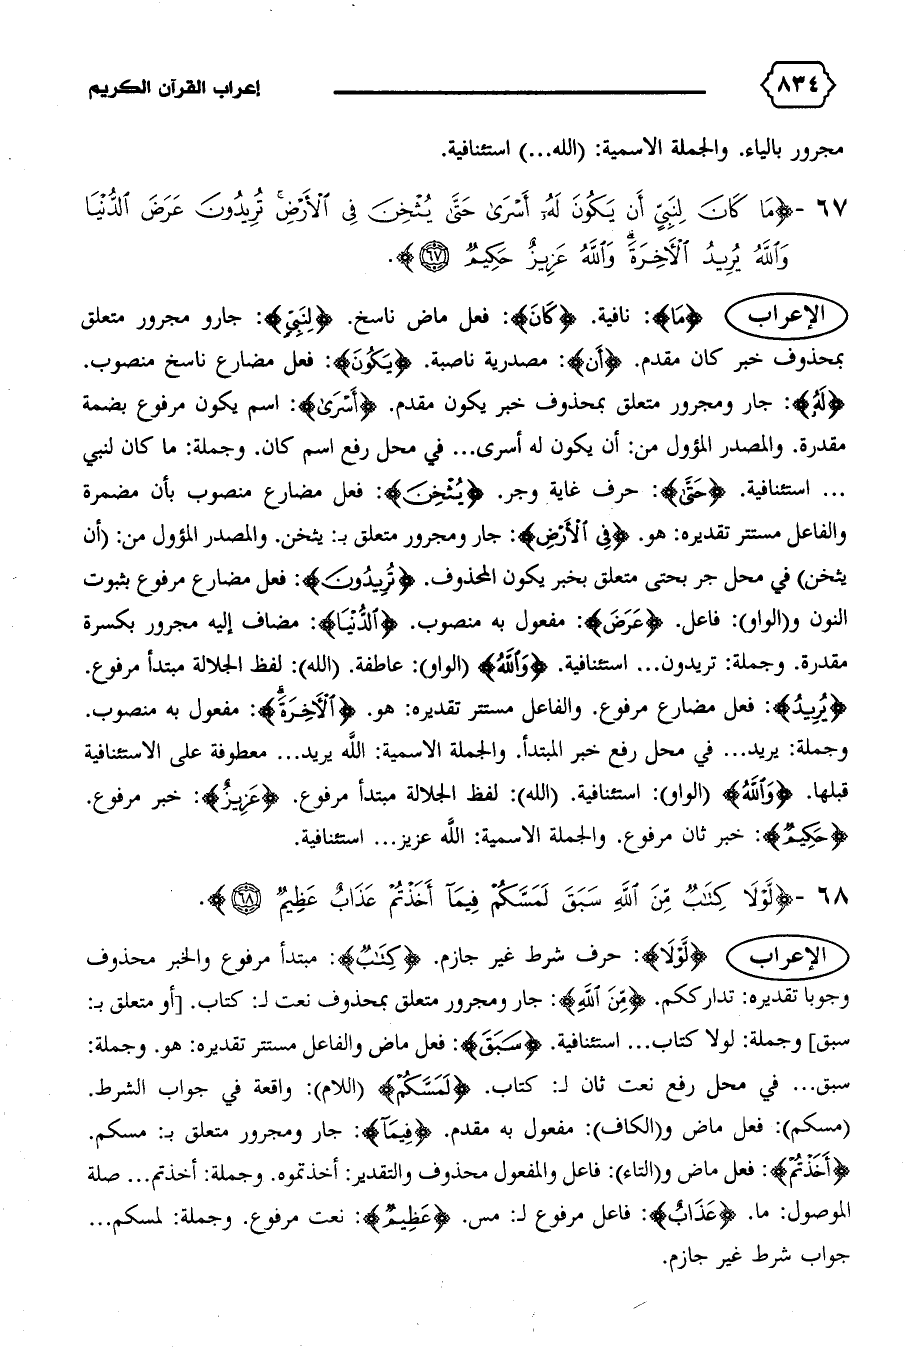 ٨٣٤ إعراب القرآن الكريم
مجرور بالياء. والجملة الاسمية: (الله...) استئنافية.
٦٧ -﴿مَا كَانَ لِنَبِيٍّ أَن يَكُونَ لَهُۥٓ أَسْرَىٰ حَتَّىٰ يُثْخِنَ فِى ٱلْأَرْضِ ۚ تُرِيدُونَ عَرَضَ ٱلدُّنْيَا
وَٱللَّهُ يُرِيدُ ٱلْـَٔاخِرَةَ ۗ وَٱللَّهُ عَزِيزٌ حَكِيمٌ ٦٧﴾.
الإعراب ﴿مَا﴾: نافية. ﴿كَانَ﴾: فعل ماض ناسخ. ﴿لِنَبِيٍّ﴾: جارو مجرور متعلق
بمحذوف خبر كان مقدم. ﴿أَن﴾: مصدرية ناصبة. ﴿يَكُونَ﴾: فعل مضارع ناسخ منصوب.
﴿لَهُۥٓ﴾: جار ومجرور متعلق بمحذوف خبر يكون مقدم. ﴿أَسْرَىٰ﴾: اسم يكون مرفوع بضمة
مقدرة. والمصدر المؤول من: أن يكون له أسرى... في محل رفع اسم كان. وجملة: ما كان لنبي
... استئنافية. ﴿حَتَّىٰ﴾: حرف غاية وجر. ﴿يُثْخِنَ﴾: فعل مضارع منصوب بأن مضمرة
والفاعل مستتر تقديره: هو. ﴿فِى ٱلْأَرْضِ﴾: جار ومجرور متعلق بـ: يثخن. والمصدر المؤول من: (أن
يثخن) في محل جر بحتى متعلق بخبر يكون المحذوف. ﴿تُرِيدُونَ﴾: فعل مضارع مرفوع بثبوت
النون و(الواو): فاعل. ﴿عَرَضَ﴾: مفعول به منصوب. ﴿ٱلدُّنْيَا﴾: مضاف إليه مجرور بكسرة
مقدرة. وجملة: تريدون... استئنافية. ﴿وَٱللَّهُ﴾ (الواو): عاطفة. (الله): لفظ الجلالة مبتدأ مرفوع.
﴿يُرِيدُ﴾: فعل مضارع مرفوع. والفاعل مستتر تقديره: هو. ﴿ٱلْـَٔاخِرَةَ ۗ﴾: مفعول به منصوب.
وجملة: يريد... في محل رفع خبر المبتدأ. والجملة الاسمية: اللَّه يريد... معطوفة على الاستئنافية
قبلها. ﴿وَٱللَّهُ﴾ (الواو): استئنافية. (الله): لفظ الجلالة مبتدأ مرفوع. ﴿عَزِيزٌ﴾: خبر مرفوع.
﴿حَكِيمٌ﴾: خبر ثان مرفوع. والجملة الاسمية: اللَّه عزيز... استئنافية.
٦٨ -﴿لَّوْلَا كِتَٰبٌ مِّنَ ٱللَّهِ سَبَقَ لَمَسَّكُمْ فِيمَآ أَخَذْتُمْ عَذَابٌ عَظِيمٌ ٦٨﴾.
الإعراب ﴿لَّوْلَا﴾: حرف شرط غير جازم. ﴿كِتَٰبٌ﴾: مبتدأ مرفوع والخبر محذوف
وجوبا تقديره: تدارككم. ﴿مِّنَ ٱللَّهِ﴾: جار ومجرور متعلق بمحذوف نعت لـ: كتاب. [أو متعلق بـ:
سبق] وجملة: لولا كتاب... استئنافية. ﴿سَبَقَ﴾: فعل ماض والفاعل مستتر تقديره: هو. وجملة:
سبق... في محل رفع نعت ثان لـ: كتاب. ﴿لَمَسَّكُمْ﴾ (اللام): واقعة في جواب الشرط.
(مسكم): فعل ماض و(الكاف): مفعول به مقدم. ﴿فِيمَآ﴾: جار ومجرور متعلق بـ: مسكم.
﴿أَخَذْتُمْ﴾: فعل ماض و(التاء): فاعل والمفعول محذوف والتقدير: أخذتموه. وجملة: أخذتم... صلة
الموصول: ما. ﴿عَذَابٌ﴾: فاعل مرفوع لـ: مس. ﴿عَظِيمٌ﴾: نعت مرفوع. وجملة: لمسكم...
جواب شرط غير جازم.